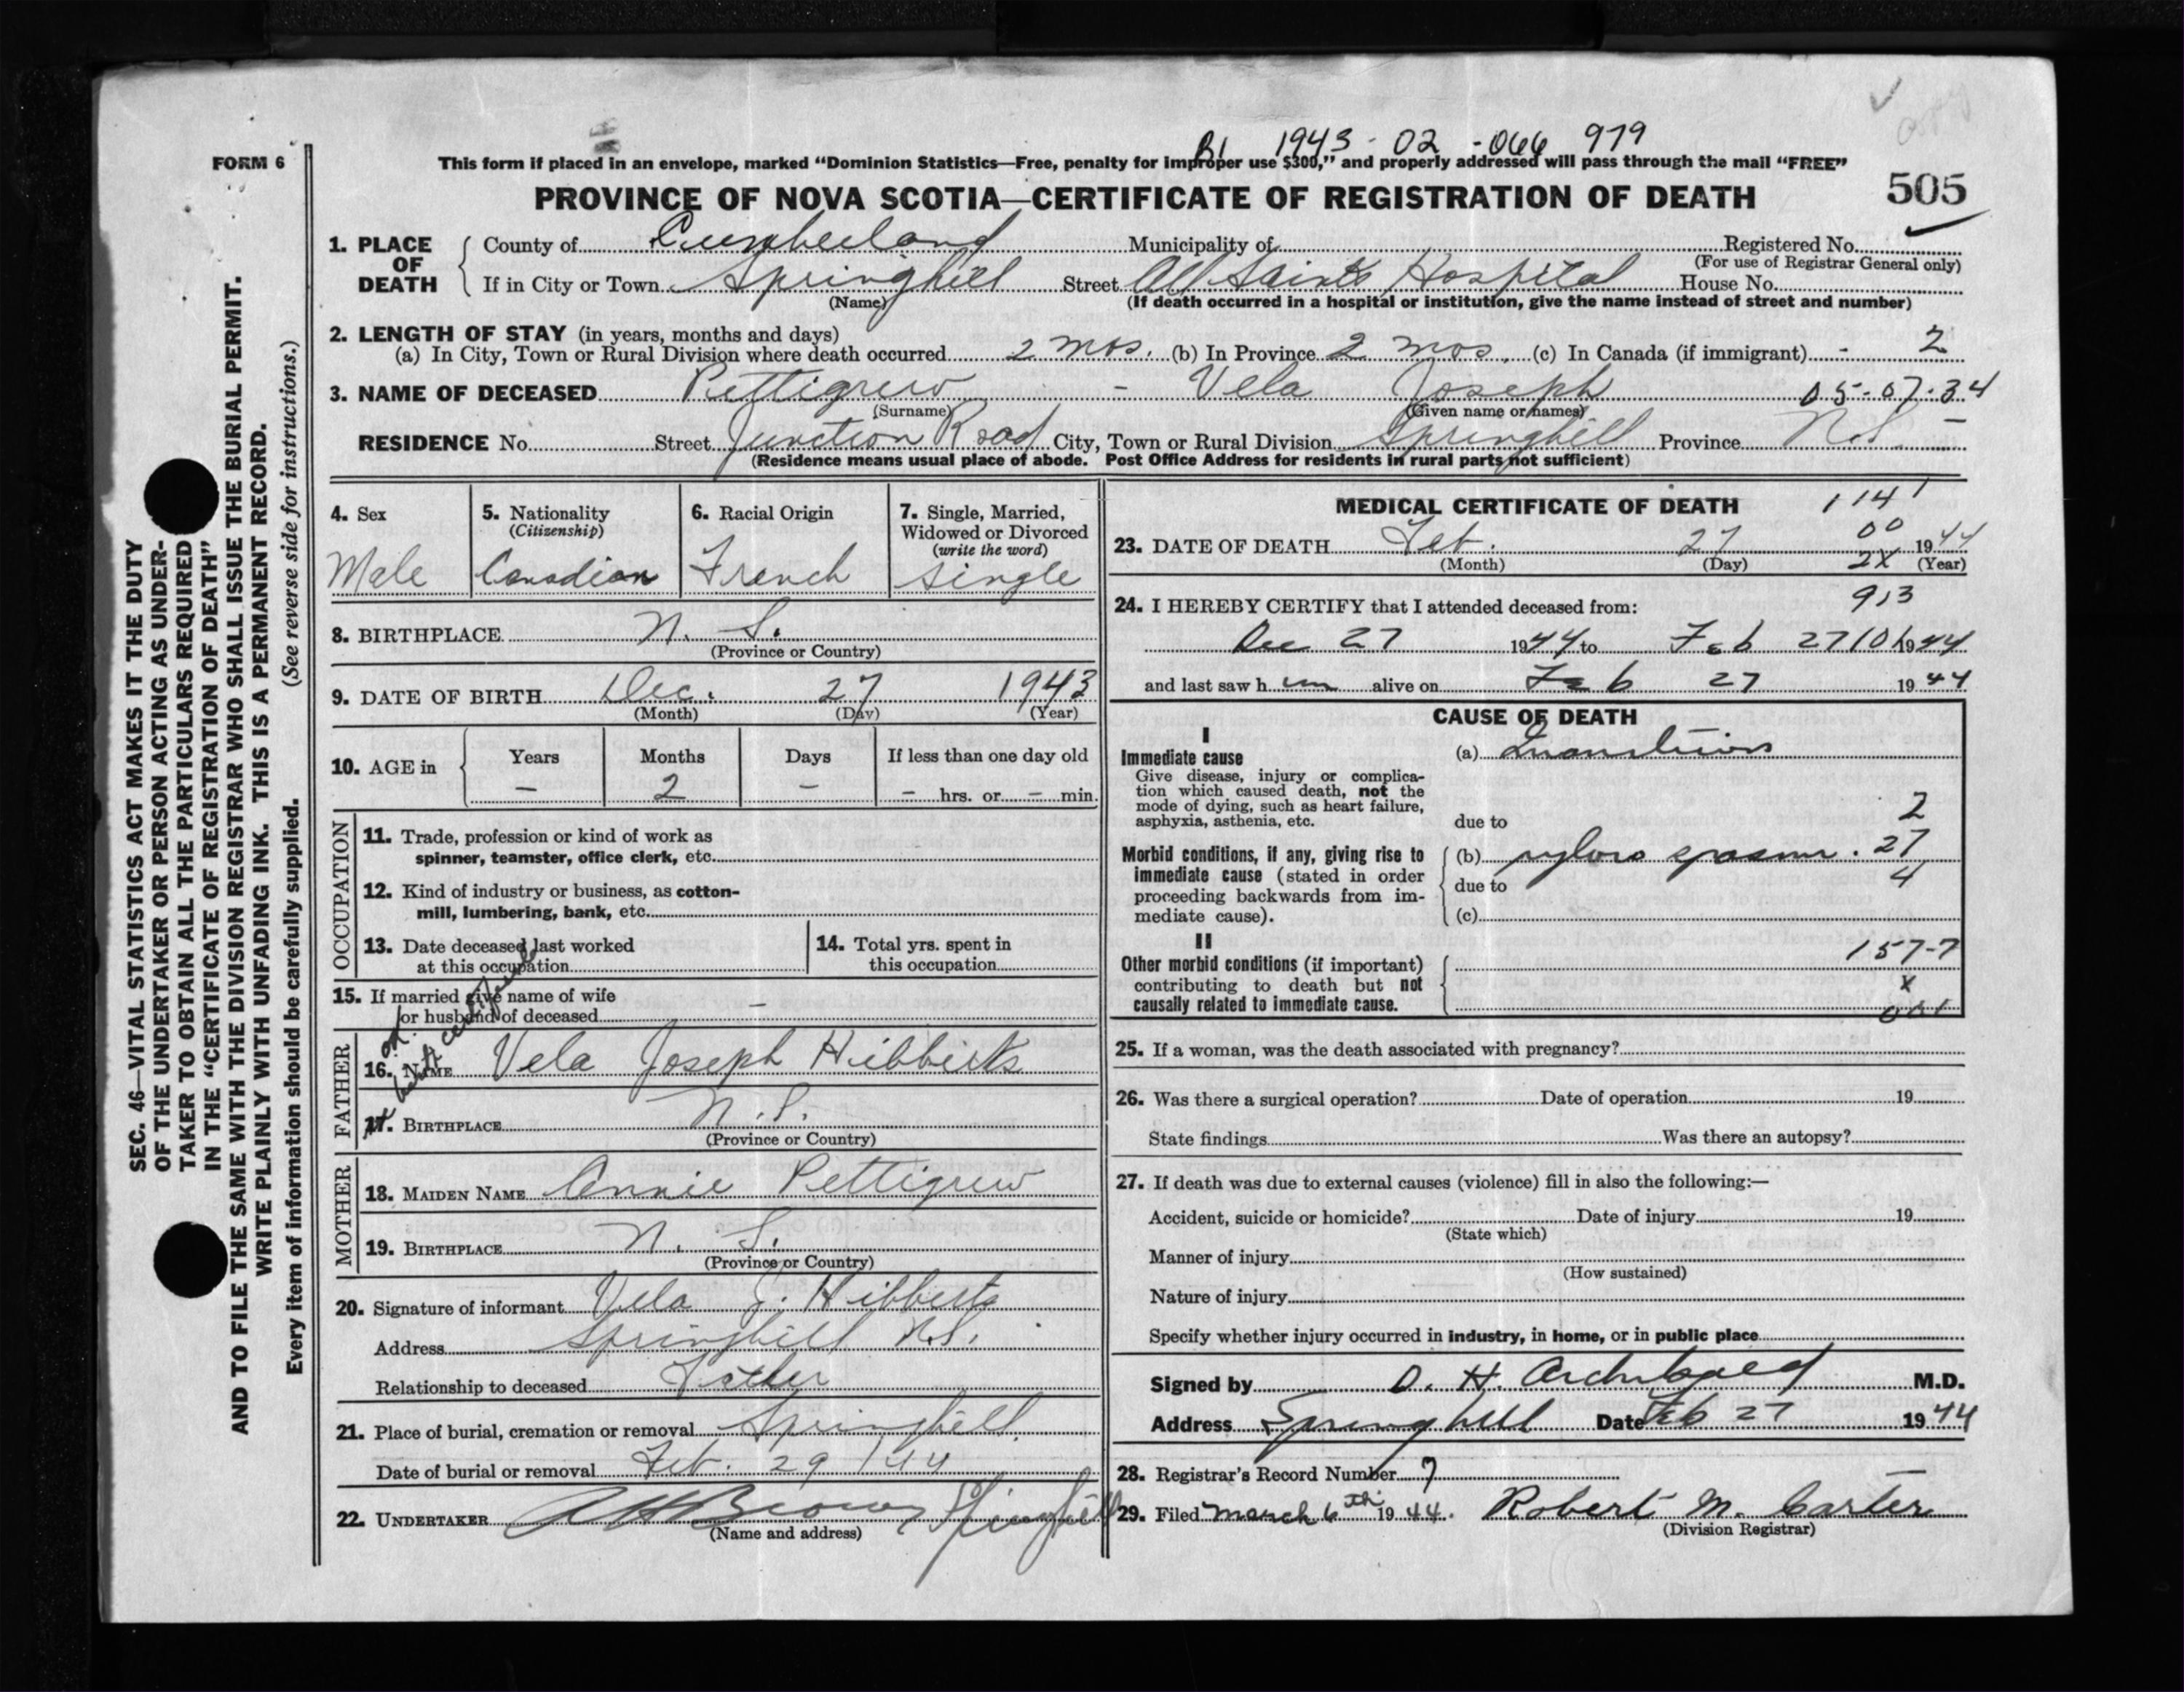 BI 1943-02-066 979
FORM 6
This form if placed in an envelope, marked “Dominion Statistics—Free, penalty for improper use $300,” and properly addressed will pass through the mail “FREE”
PROVINCE OF NOVA SCOTIA—CERTIFICATE OF REGISTRATION OF DEATH 505
SEC. 46—VITAL STATISTICS ACT MAKES IT THE DUTY
OF THE UNDERTAKER OR PERSON ACTING AS UNDER-
TAKER TO OBTAIN ALL THE PARTICULARS REQUIRED
IN THE “CERTIFICATE OF REGISTRATION OF DEATH”
AND TO FILE THE SAME WITH THE DIVISION REGISTRAR WHO SHALL ISSUE THE BURIAL PERMIT.
WRITE PLAINLY WITH UNFADING INK. THIS IS A PERMANENT RECORD.
Every item of information should be carefully supplied. (See reverse side for instructions.)
1. PLACE OF DEATH
County of Cumberland Municipality of Registered No.
(For use of Registrar General only)
If in City or Town Springhill Street All Saints Hospital House No.
(Name) (If death occurred in a hospital or institution, give the name instead of street and number)
2. LENGTH OF STAY (in years, months and days)
(a) In City, Town or Rural Division where death occurred 2 mos. (b) In Province 2 mos. (c) In Canada (if immigrant) - 2
3. NAME OF DECEASED Pettigrew - Vela Joseph 05-07-34
(Surname) (Given name or names)
RESIDENCE No. Street Junction Road City, Town or Rural Division Springhill Province N.S. -
(Residence means usual place of abode. Post Office Address for residents in rural parts not sufficient)
4. Sex
Male
5. Nationality
(Citizenship)
Canadian
6. Racial Origin
French
7. Single, Married,
Widowed or Divorced
(write the word)
Single
8. BIRTHPLACE N. S.
(Province or Country)
9. DATE OF BIRTH Dec. 27 1943
(Month) (Day) (Year)
10. AGE in
Years Months Days If less than one day old
- 2 - - hrs. or - min.
OCCUPATION
11. Trade, profession or kind of work as
spinner, teamster, office clerk, etc.
12. Kind of industry or business, as cotton-
mill, lumbering, bank, etc.
13. Date deceased last worked
at this occupation
14. Total yrs. spent in
this occupation
15. If married give name of wife
or husband of deceased -
FATHER
16. NAME Vela Joseph Hibberts
17. BIRTHPLACE N. S.
(Province or Country)
MOTHER
18. MAIDEN NAME Annie Pettigrew
19. BIRTHPLACE N. S.
(Province or Country)
20. Signature of informant Vela J. Hibberts
Address Springhill N.S.
Relationship to deceased Father
21. Place of burial, cremation or removal Springhill
Date of burial or removal Feb. 29/44
22. UNDERTAKER A H Brown Springhill
(Name and address)
MEDICAL CERTIFICATE OF DEATH 114 1
00
23. DATE OF DEATH Feb. 27 1944
(Month) (Day) 2X (Year)
24. I HEREBY CERTIFY that I attended deceased from: 913
Dec 27 1944 to Feb 27 101 1944
and last saw him alive on Feb 27 1944
CAUSE OF DEATH
I
Immediate cause
Give disease, injury or complica-
tion which caused death, not the
mode of dying, such as heart failure,
asphyxia, asthenia, etc.
(a) Inanition
due to 2
Morbid conditions, if any, giving rise to
immediate cause (stated in order
proceeding backwards from im-
mediate cause).
(b) pyloro spasm. 27
due to 4
(c)
II
Other morbid conditions (if important)
contributing to death but not
causally related to immediate cause.
157-7
X
001
25. If a woman, was the death associated with pregnancy?
26. Was there a surgical operation? Date of operation 19
State findings Was there an autopsy?
27. If death was due to external causes (violence) fill in also the following:—
Accident, suicide or homicide? Date of injury 19
(State which)
Manner of injury
(How sustained)
Nature of injury
Specify whether injury occurred in industry, in home, or in public place
Signed by D. H. Archibald M.D.
Address Springhill Date Feb 27 1944
28. Registrar's Record Number 7
29. Filed March 6th 1944. Robert M. Carter
(Division Registrar)